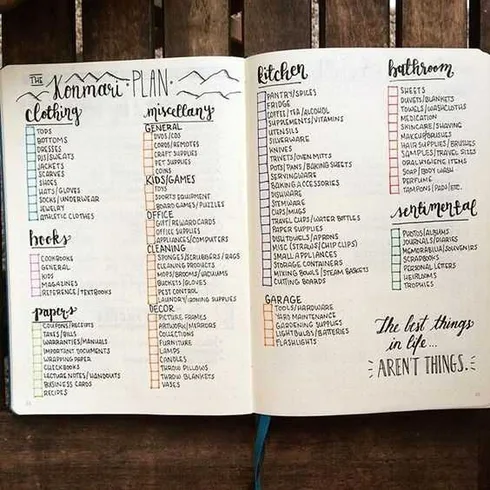 THE Konmari PLAN
clothing
TOPS
BOTTOMS
DRESSES
PJS/SWEATS
JACKETS
SCARVES
SHOES
HATS/GLOVES
SOCKS/UNDERWEAR
JEWELRY
ATHLETIC CLOTHES
books
COOKBOOKS
GENERAL
KIDS
MAGAZINES
REFERENCE/TEXTBOOKS
papers
COUPONS/RECEIPTS
TAXES/BILLS
WARRANTIES/MANUALS
IMPORTANT DOCUMENTS
WRAPPING PAPER
CHECKBOOKS
LECTURE NOTES/HANDOUTS
BUSINESS CARDS
RECIPES
miscellany
GENERAL
DVDS/CDS
CORDS/REMOTES
CRAFT SUPPLIES
PET SUPPLIES
COINS
KIDS/GAMES
TOYS
SPORTS EQUIPMENT
BOARD GAMES/PUZZLES
OFFICE
GIFT/REWARD CARDS
OFFICE SUPPLIES
APPLIANCES/COMPUTERS
CLEANING
SPONGES/SCRUBBERS/RAGS
CLEANING PRODUCTS
MOPS/BROOMS/VACUUMS
BUCKETS/GLOVES
PEST CONTROL
LAUNDRY/IRONING SUPPLIES
DECOR
PICTURE FRAMES
ARTWORK/MIRRORS
COLLECTIONS
FURNITURE
LAMPS
CANDLES
THROW PILLOWS
THROW BLANKETS
VASES
kitchen
PANTRY/SPICES
FRIDGE
COFFEE/TEA/ALCOHOL
SUPPLEMENTS/VITAMINS
UTENSILS
SILVERWARE
KNIVES
TRIVETS/OVEN MITTS
POTS/PANS/BAKING SHEETS
SERVINGWARE
BAKING ACCESSORIES
DISHWARE
STEMWARE
CUPS/MUGS
TRAVEL CUPS/WATER BOTTLES
PAPER SUPPLIES
DISH TOWELS/APRONS
MISC (STRAWS/CHIP CLIPS)
SMALL APPLIANCES
STORAGE CONTAINERS
MIXING BOWLS/STEAM BASKETS
CUTTING BOARDS
GARAGE
TOOLS/HARDWARE
YARD MAINTENANCE
GARDENING SUPPLIES
LIGHTBULBS/BATTERIES
FLASHLIGHTS
bathroom
SHEETS
DUVETS/BLANKETS
TOWELS/WASHCLOTHS
MEDICATION
SKINCARE/SHAVING
MAKEUP/BRUSHES
HAIR SUPPLIES/BRUSHES
SAMPLES/TRAVEL SIZES
ORAL HYGIENE ITEMS
SOAP/BODY WASH
PERFUME
TAMPONS/PADS/ETC.
sentimental
PHOTOS/ALBUMS
JOURNALS/DIARIES
MEMORABILIA/SOUVENIRS
SCRAPBOOKS
PERSONAL LETTERS
HEIRLOOMS
TROPHIES
The best things
in life...
AREN'T THINGS.